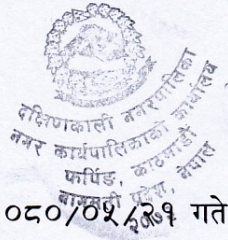 दक्षिणकाली नगरपालिका
नगर कार्यपालिकाको कार्यालय
फर्पिङ, काठमाडौं
बागमती प्रदेश, नेपाल
२०७३
०८०/०५/२१ गते